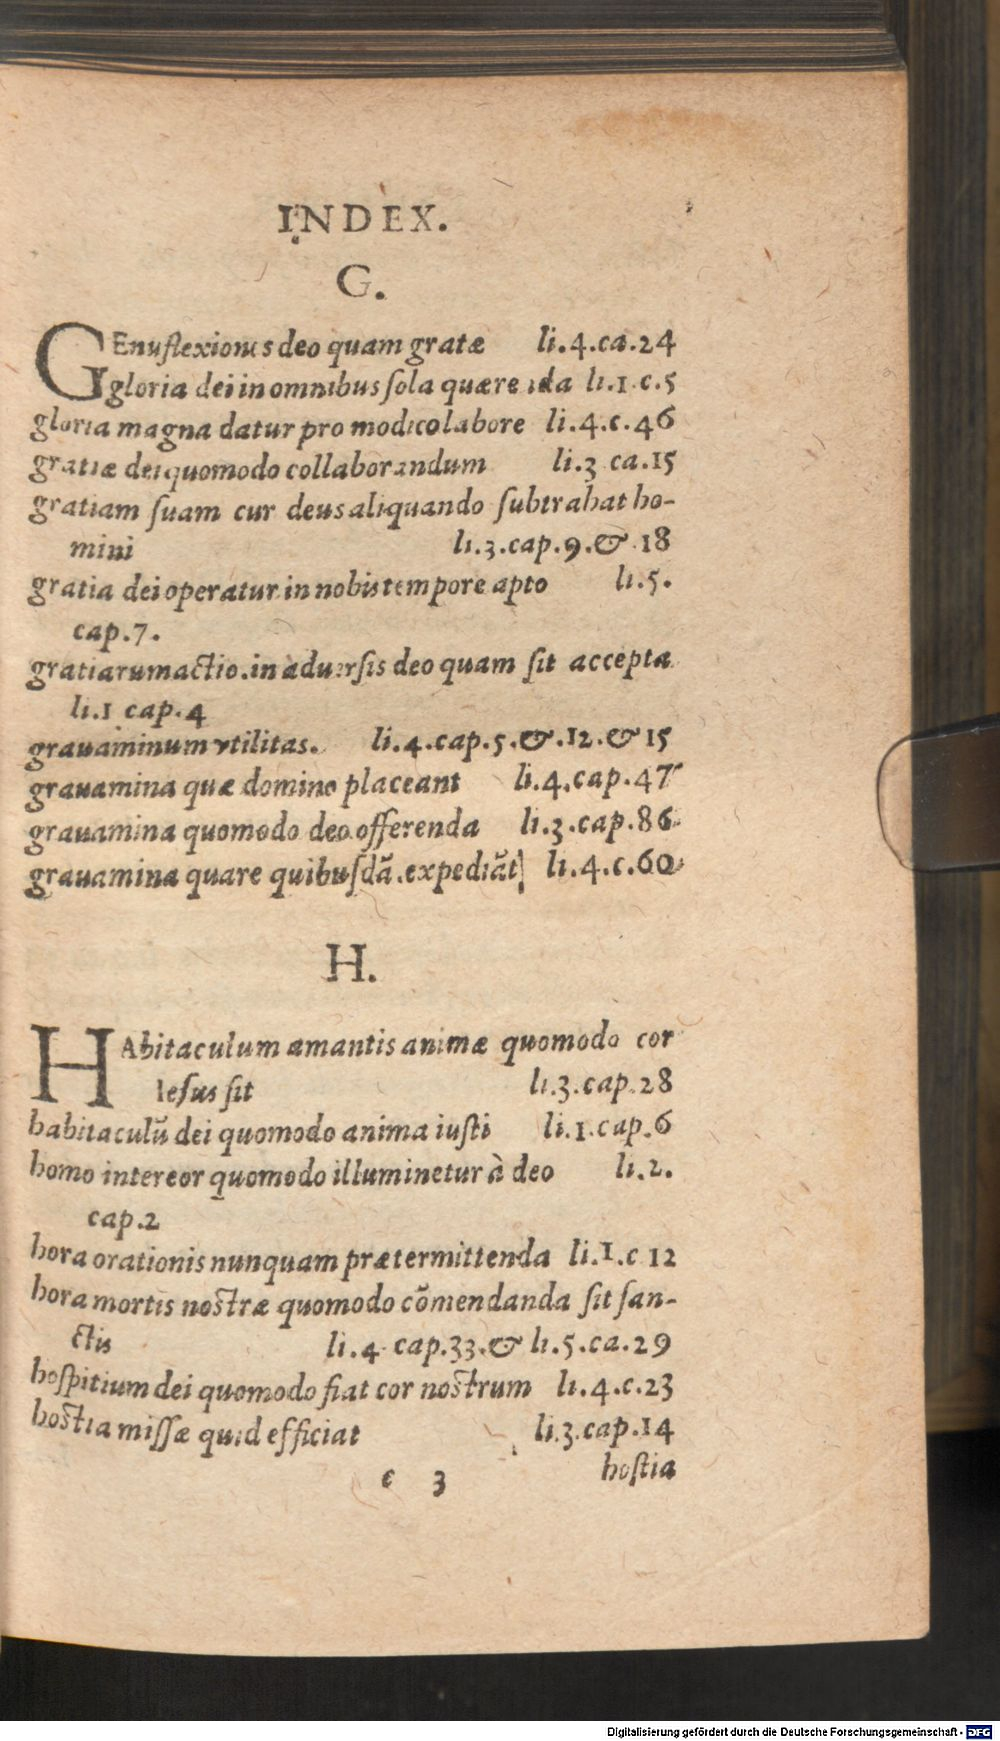 INDEX.
G.
GEnuflexiones deo quam gratæ li.4.ca.24
gloria dei in omnibus ſola quærenda li.1.c.5
gloria magna datur pro modico labore li.4.c.46
gratiæ dei quomodo collaborandum li.3 ca.15
gratiam ſuam cur deus aliquando ſubtrahat ho-
mini li.3.cap.9.& 18
gratia dei operatur in nobis tempore apto li.5.
cap.7.
gratiarum actio in aduerſis deo quam ſit accepta
li.1 cap.4
grauaminum vtilitas. li.4.cap.5.&.12.& 15
grauamina quæ domino placeant li.4.cap.47
grauamina quomodo deo offerenda li.3.cap.86
grauamina quare quibuſdā expediāt li.4.c.60
H.
HAbitaculum amantis animæ quomodo cor
Ieſus ſit li.3.cap.28
habitaculū dei quomodo anima iuſti li.1.cap.6
homo intereor quomodo illuminetur à deo li.2.
cap.2
hora orationis nunquam prætermittenda li.1.c 12
hora mortis noſtræ quomodo cōmendanda ſit ſan-
ctis li.4 cap.33.& li.5.ca.29
hoſpitium dei quomodo fiat cor noſtrum li.4.c.23
hoſtia miſſæ quid efficiat li.3.cap.14
e 3 hoſtia
Digitalisierung gefördert durch die Deutsche Forschungsgemeinschaft - DFG